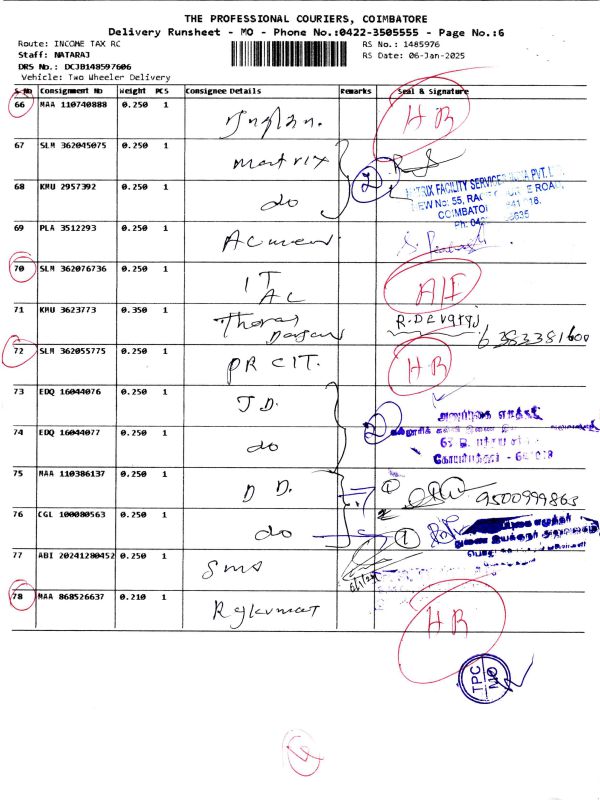 THE PROFESSIONAL COURIERS, COIMBATORE
Delivery Runsheet - MO - Phone No.:0422-3505555 - Page No.:6
Route: INCOME TAX RC RS No.: 1485976
Staff: NATARAJ RS Date: 06-Jan-2025
DRS No.: DCJB148597606
Vehicle: Two Wheeler Delivery
S.No Consignment No Weight PCS Consignee Details Remarks Seal & Signature
66 MAA 110740888 0.250 1 HR
67 SLM 362045075 0.250 1 matrix 2
68 KMU 2957392 0.250 1 do
MATRIX FACILITY SERVICES INDIA PVT. LTD.
NEW No: 55, RACE COURSE ROAD,
COIMBATORE 641 018.
69 PLA 3512293 0.250 1
70 SLM 362076736 0.250 1 IT AC
71 KMU 3623773 0.350 1 Thomas R. Devaraj 6383381600
72 SLM 362055775 0.250 1 PR CIT. HR
73 EDQ 16044076 0.250 1 J.D. 2
74 EDQ 16044077 0.250 1 do
75 MAA 110386137 0.250 1 D D. 9500999863
76 CGL 100080563 0.250 1 do 1
77 ABI 20241280452 0.250 1 sms
78 MAA 868526637 0.210 1 Rajkumar HR
TPC
MO